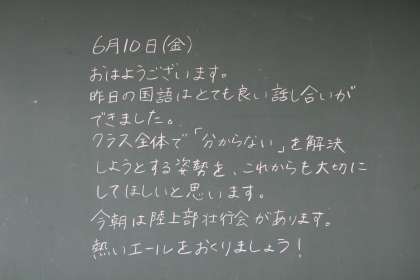 6月10日(金)
おはようございます。
昨日の国語はとても良い話し合いが
できました。
クラス全体で「分からない」を解決
しようとする姿勢を、これからも大切に
してほしいと思います。
今朝は陸上部壮行会があります。
熱いエールをおくりましょう!